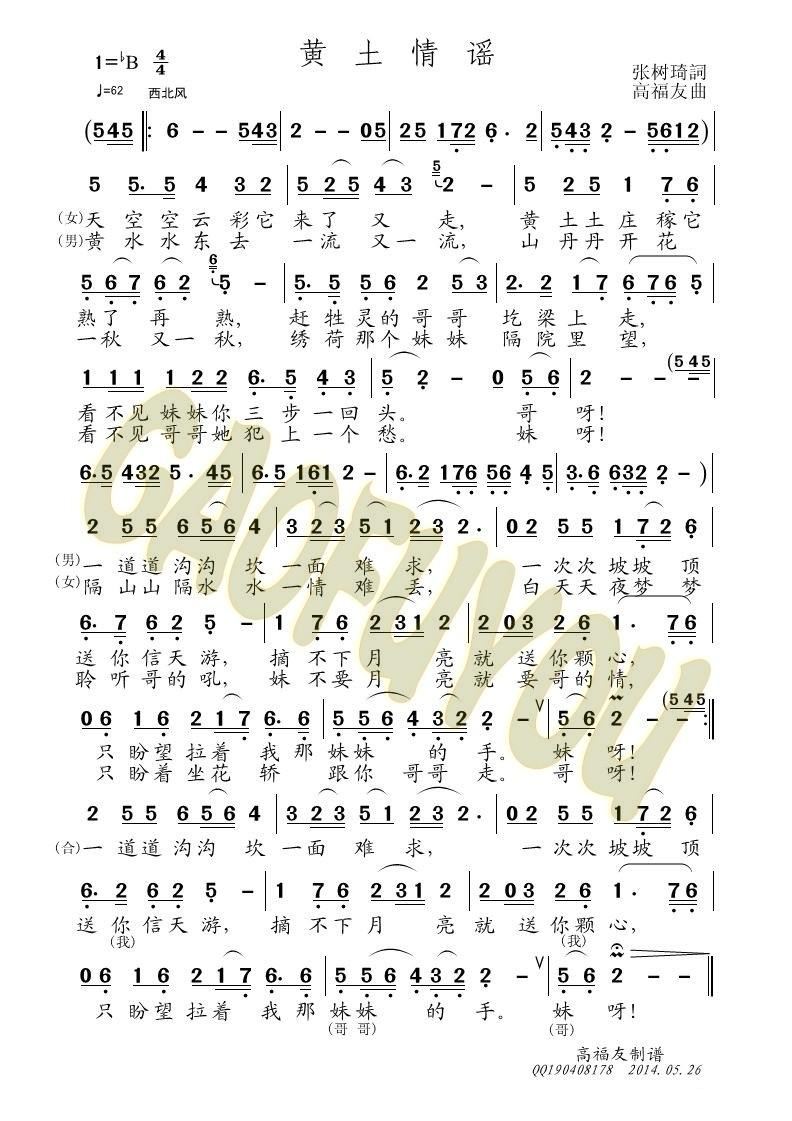 黄土情谣
1=♭B 4/4
♩=62 西北风
张树琦詞
高福友曲
(545 ‖: 6 - - 543 | 2 - - 05 | 25 172 6. 2 | 543 2 - 5612)
5 5. 5 4 3 2 | 5 2 5 4 3 5 2 - | 5 2 5 1 7 6
(女)天空空云彩它来了又走,黄土土庄稼它
(男)黄水水东去一流又一流,山丹丹开花
5 6 7 6 2 6 5 - | 5. 5 5 6 2 5 3 | 2. 2 1 7 6 7 6 5
熟了再熟,赶牲灵的哥哥圪梁上走,
一秋又一秋,绣荷那个妹妹隔院里望,
1 1 1 1 2 2 6. 5 4 3 | 5 2 - 0 5 6 | 2 - - (5 4 5
看不见妹妹你三步一回头。哥呀!
看不见哥哥她犯上一个愁。妹呀!
6.5 432 5. 45 | 6.5 161 2 - | 6.2 176 56 4 5 | 3.6 632 2 - )
2 5 5 6 5 6 4 | 3 2 3 5 1 2 3 2. | 0 2 5 5 1 7 2 6
(男)一道道沟沟坎一面难求,一次次坡坡顶
(女)隔山山隔水水一情难丢,白天天夜梦梦
6. 7 6 2 5 - | 1 7 6 2 2 3 1 2 | 2 0 3 2 6 1. 7 6
送你信天游,摘不下月亮就送你颗心,
聆听哥的吼,妹不要月亮就要哥的情,
0 6 1 6 2 1 7 6. 6 | 5 5 6 4 3 2 2 - ∨ | 5 6 2 - (5 4 5 - :‖
只盼望拉着我那妹妹的手。妹呀!
只盼着坐花轿跟你哥哥走。哥呀!
2 5 5 6 5 6 4 | 3 2 3 5 1 2 3 2. | 0 2 5 5 1 7 2 6
(合)一道道沟沟坎一面难求,一次次坡坡顶
6. 2 6 2 5 - | 1 7 6 2 2 3 1 2 | 2 0 3 2 6 1. 7 6
送你信天游,摘不下月亮就送你颗心,
(我) (我)
0 6 1 6 2 1 7 6. 6 | 5 5 6 4 3 2 2 - ∨ | 5 6 2 - - ‖
只盼望拉着我那妹妹的手。妹呀!
(哥哥) (哥)
高福友制谱
QQ190408178 2014.05.26
GAOFUYOU